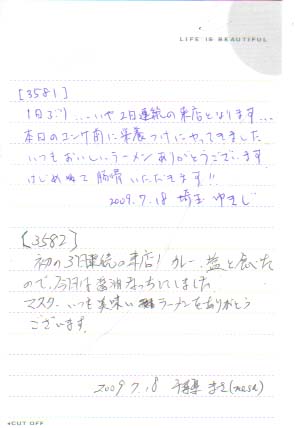 LIFE IS BEAUTIFUL
[3581]
1日ぶり...いや2日連続の来店となります...
本日のコンサ前に栄養つけにやってきました
いつもおいしいラーメンありがとうございます
はじめて 腸詰 いただきます!!
2009.7.18 埼玉 ゆきじ
[3582]
初の3日連続の来店! カレー、塩と食べた
ので、今日は醤油なっちにしました。
マスター、いつも美味い ラーメンをありがとう
ございます。
2009 7.18 千葉 まさ
CUT OFF